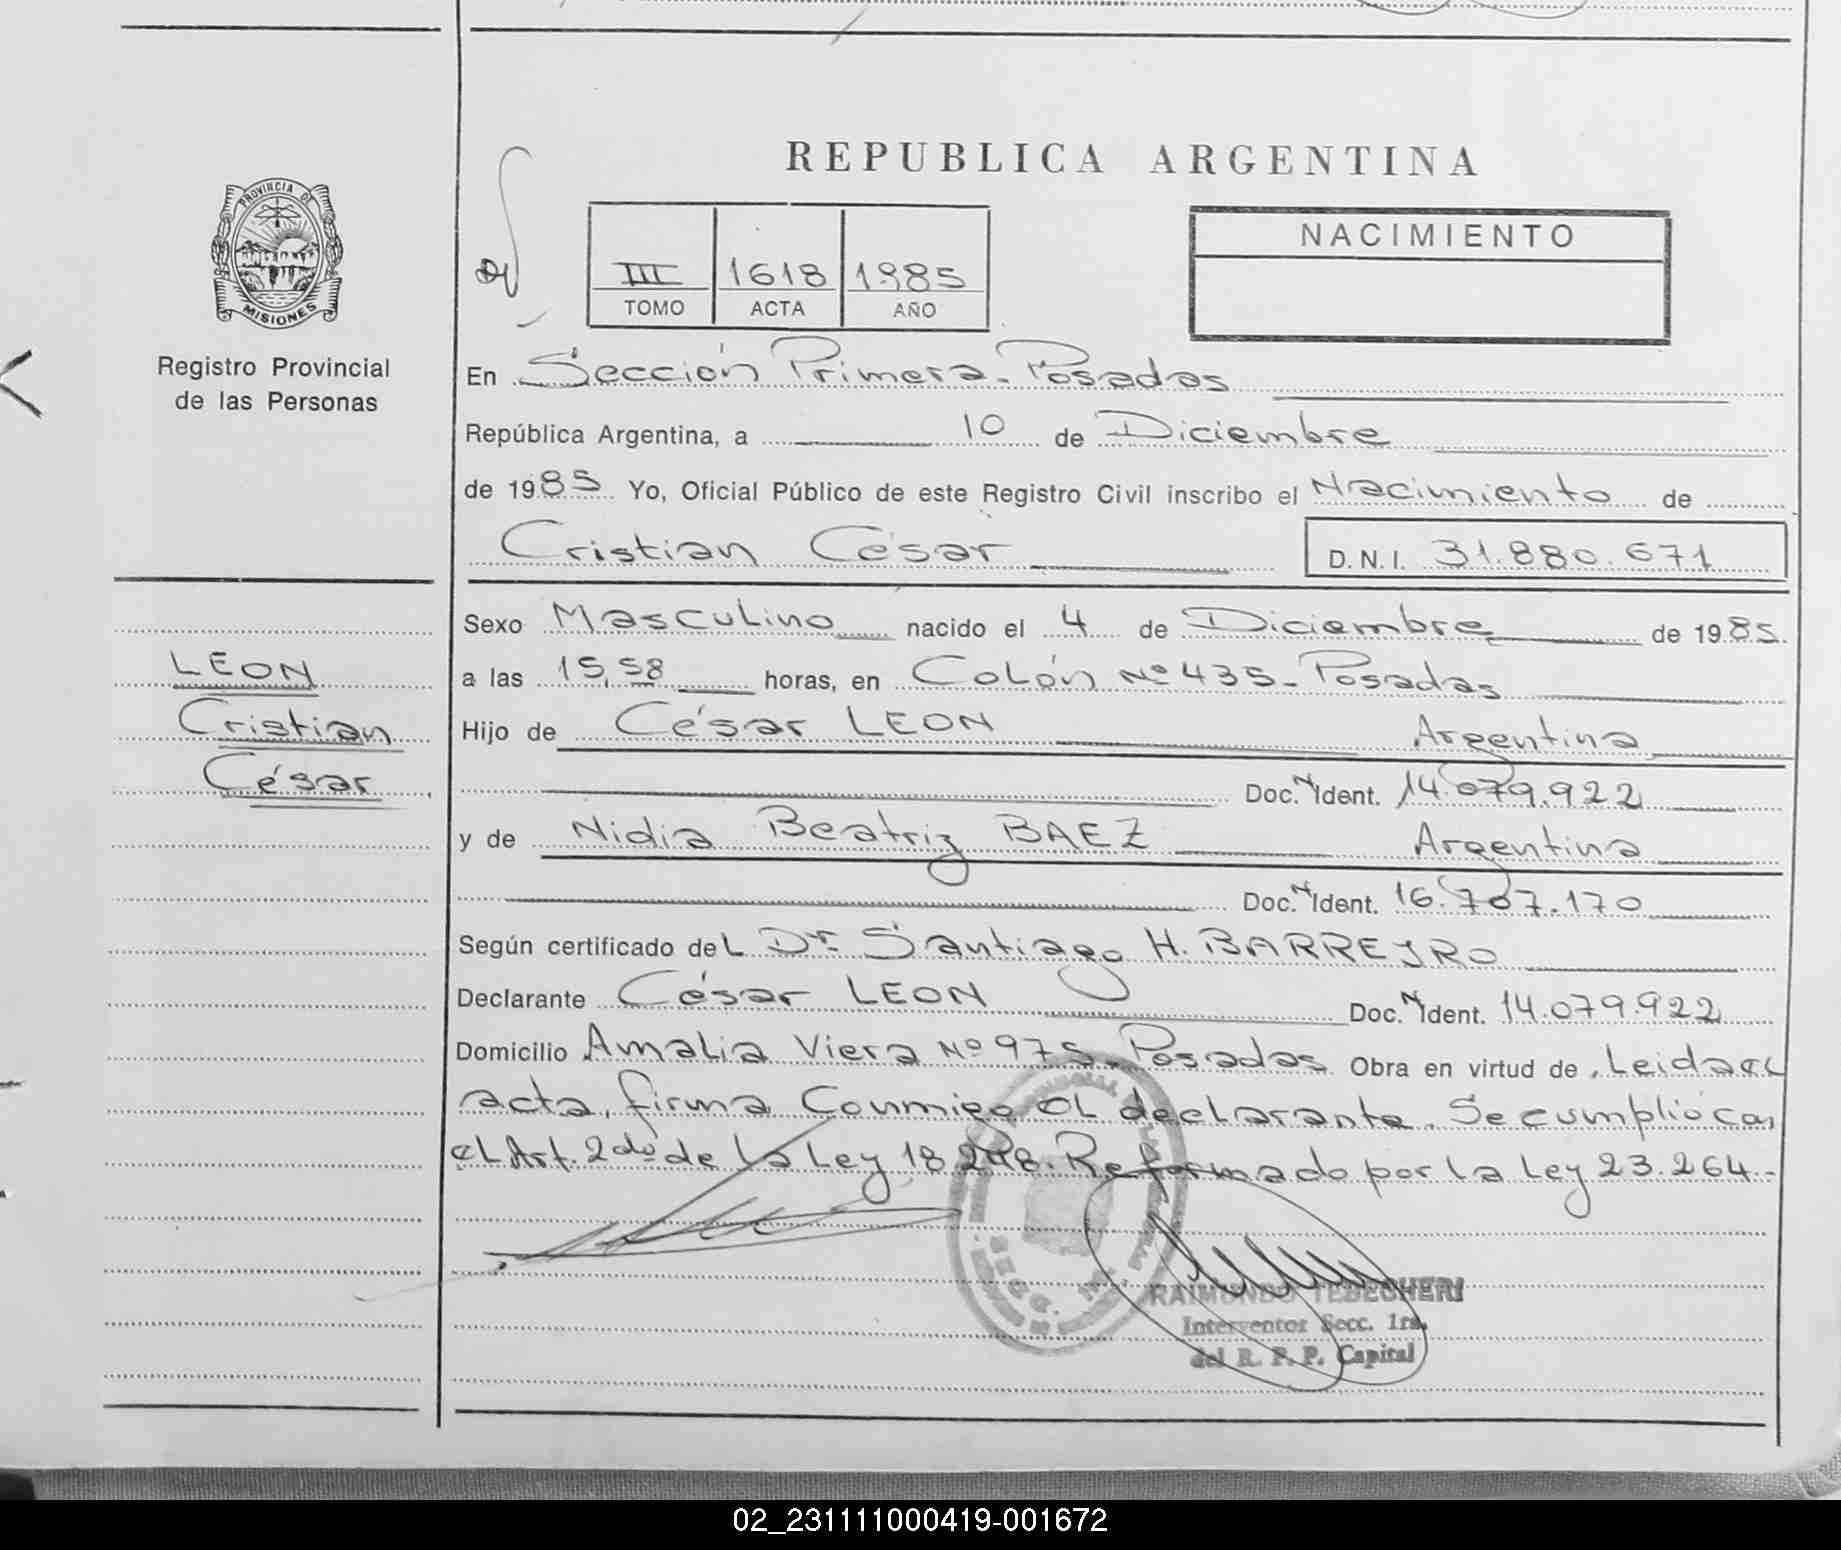 REPUBLICA ARGENTINA
PROVINCIA DE
MISIONES
Registro Provincial
de las Personas
III 1618 1985
TOMO ACTA AÑO
NACIMIENTO
En Sección Primera - Posadas
República Argentina, a 10 de Diciembre
de 1985 Yo, Oficial Público de este Registro Civil inscribo el Nacimiento de
Cristian César D.N.I. 31.880.671
Sexo Masculino nacido el 4 de Diciembre de 1985.
LEON
Cristian
César
a las 15,58 horas, en Colón Nº 435 - Posadas
Hijo de César LEON Argentina
Doc. N Ident. 14.079.922
y de Nidia Beatriz BAEZ Argentina
Doc. N Ident. 16.707.170
Según certificado del Dr. Santiago H. BARREJRO
Declarante César LEON Doc. N Ident. 14.079.922
Domicilio Amalia Viera Nº 975 - Posadas Obra en virtud de . Leida el
acta, firma Conmigo el declarante. Se cumplió con
el Art. 2do de la Ley 18.248. Reformado por la Ley 23.264.-
RAIMUNDO
Interventor Secc. 1ra.
del R. P. P. Capital
02_231111000419-001672